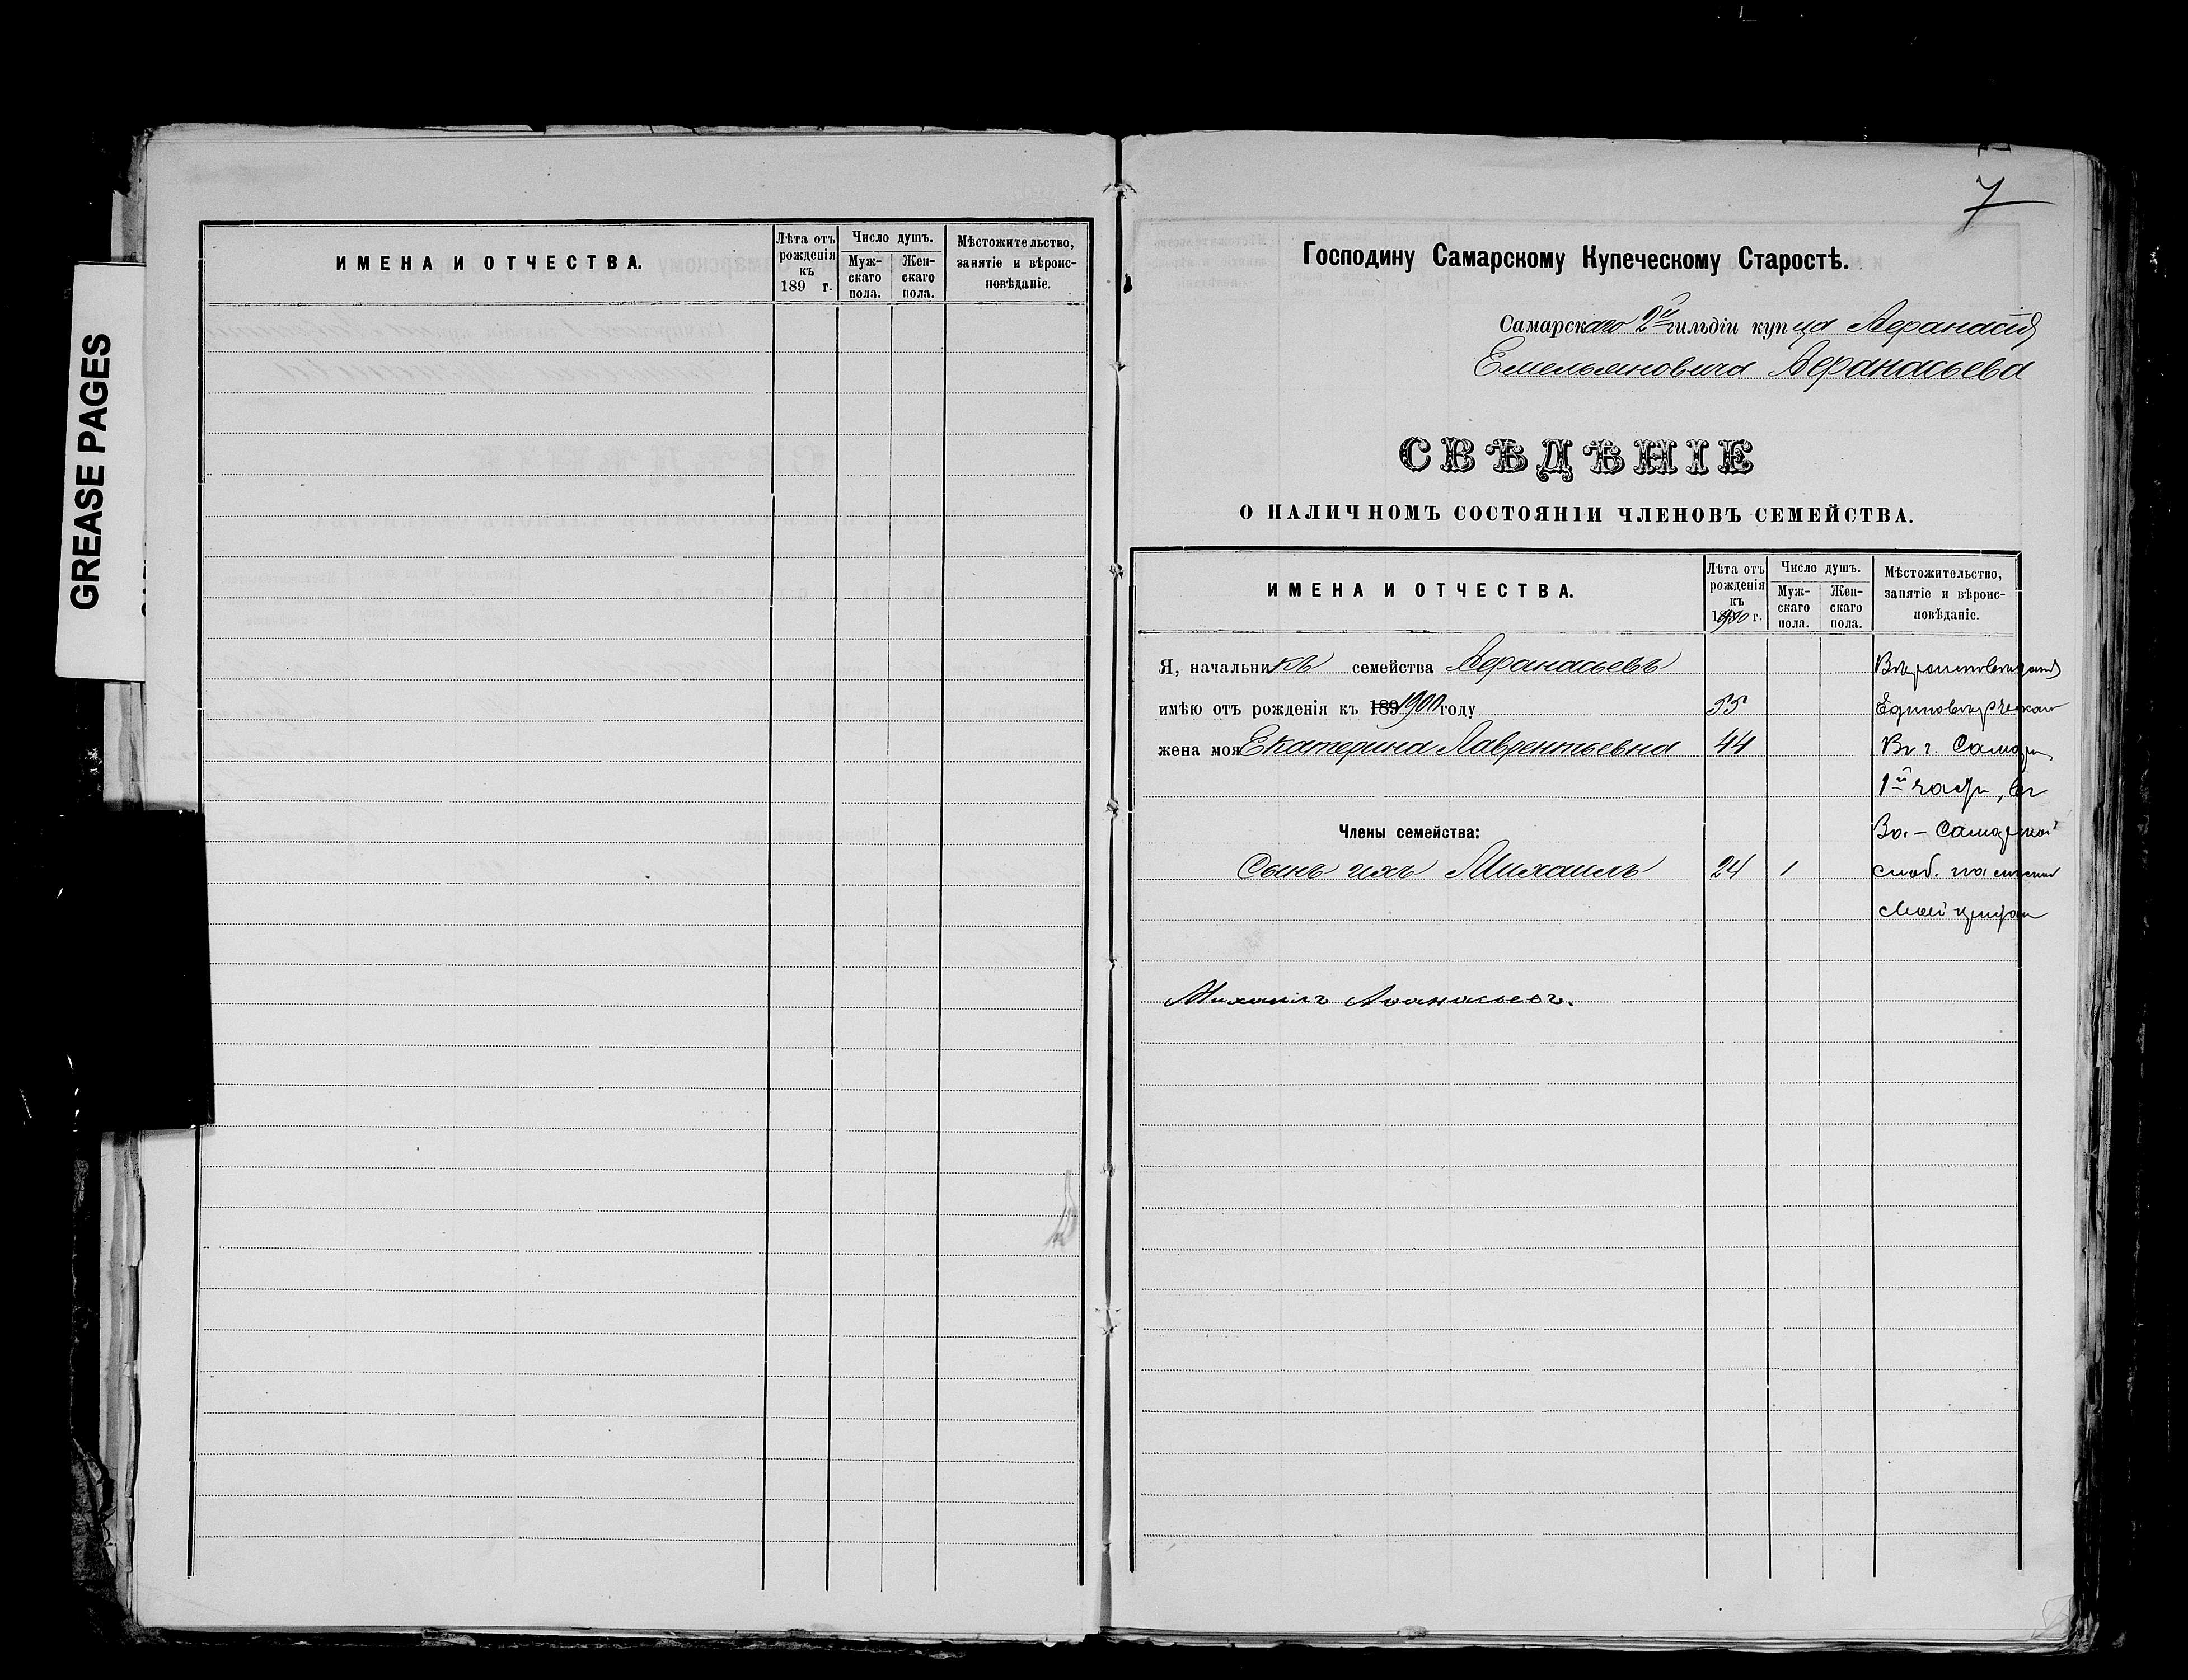 GREASE PAGES
ИМЕНА И ОТЧЕСТВА.
Лѣта отъ рожденія къ 189 г.
Число душъ.
Мужскаго пола.
Женскаго пола.
Мѣстожительство, занятіе и вѣроисповѣданіе.
7
Господину Самарскому Купеческому Старостѣ.
Самарскаго 2й гильдіи купца Афанасія
Емельяновича Афанасьева
СВѢДѢНІЕ
О НАЛИЧНОМЪ СОСТОЯНІИ ЧЛЕНОВЪ СЕМЕЙСТВА.
ИМЕНА И ОТЧЕСТВА.
Лѣта отъ рожденія къ 1900 г.
Число душъ.
Мужскаго пола.
Женскаго пола.
Мѣстожительство, занятіе и вѣроисповѣданіе.
Я, начальникъ семейства Афанасьевъ Вѣроисповѣданія
имѣю отъ рожденія къ 189 1900 году 55 Единовѣрческаго
жена моя Екатерина Лаврентьевна 44 Въ г. Самарѣ
1й части, въ
Члены семейства: За-Самарской
Сынъ ихъ Михаилъ 24 1 слоб.
Михаилъ Афанасьевъ.